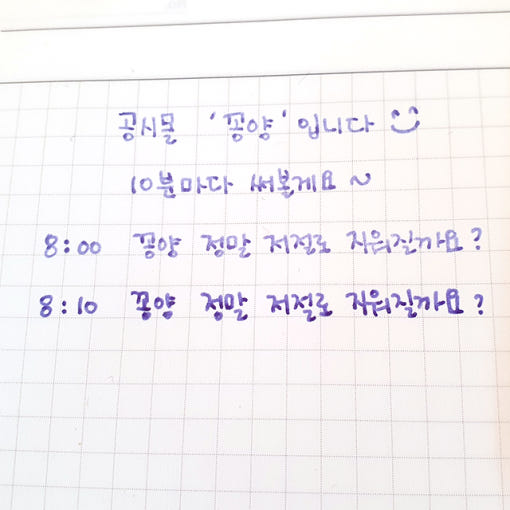 공시물 '꽁양' 입니다
10분마다 써볼게요~
8:00 꽁양 정말 저절로 지워질까요?
8:10 꽁양 정말 저절로 지워질까요?